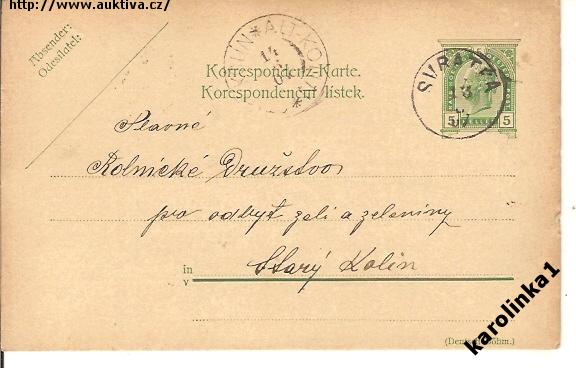 http://www.auktiva.cz/
Absender:
Odesílatel:
Korrespondenz-Karte.
Korespondenční lístek.
ALT-KO
14
SVRATKA
13
5 5
Slavné
Rolnické Družstvo
pro odbyt zelí a zeleniny
in
v
Starý Kolín
(Deutsch-Böhm.)
karolinka1